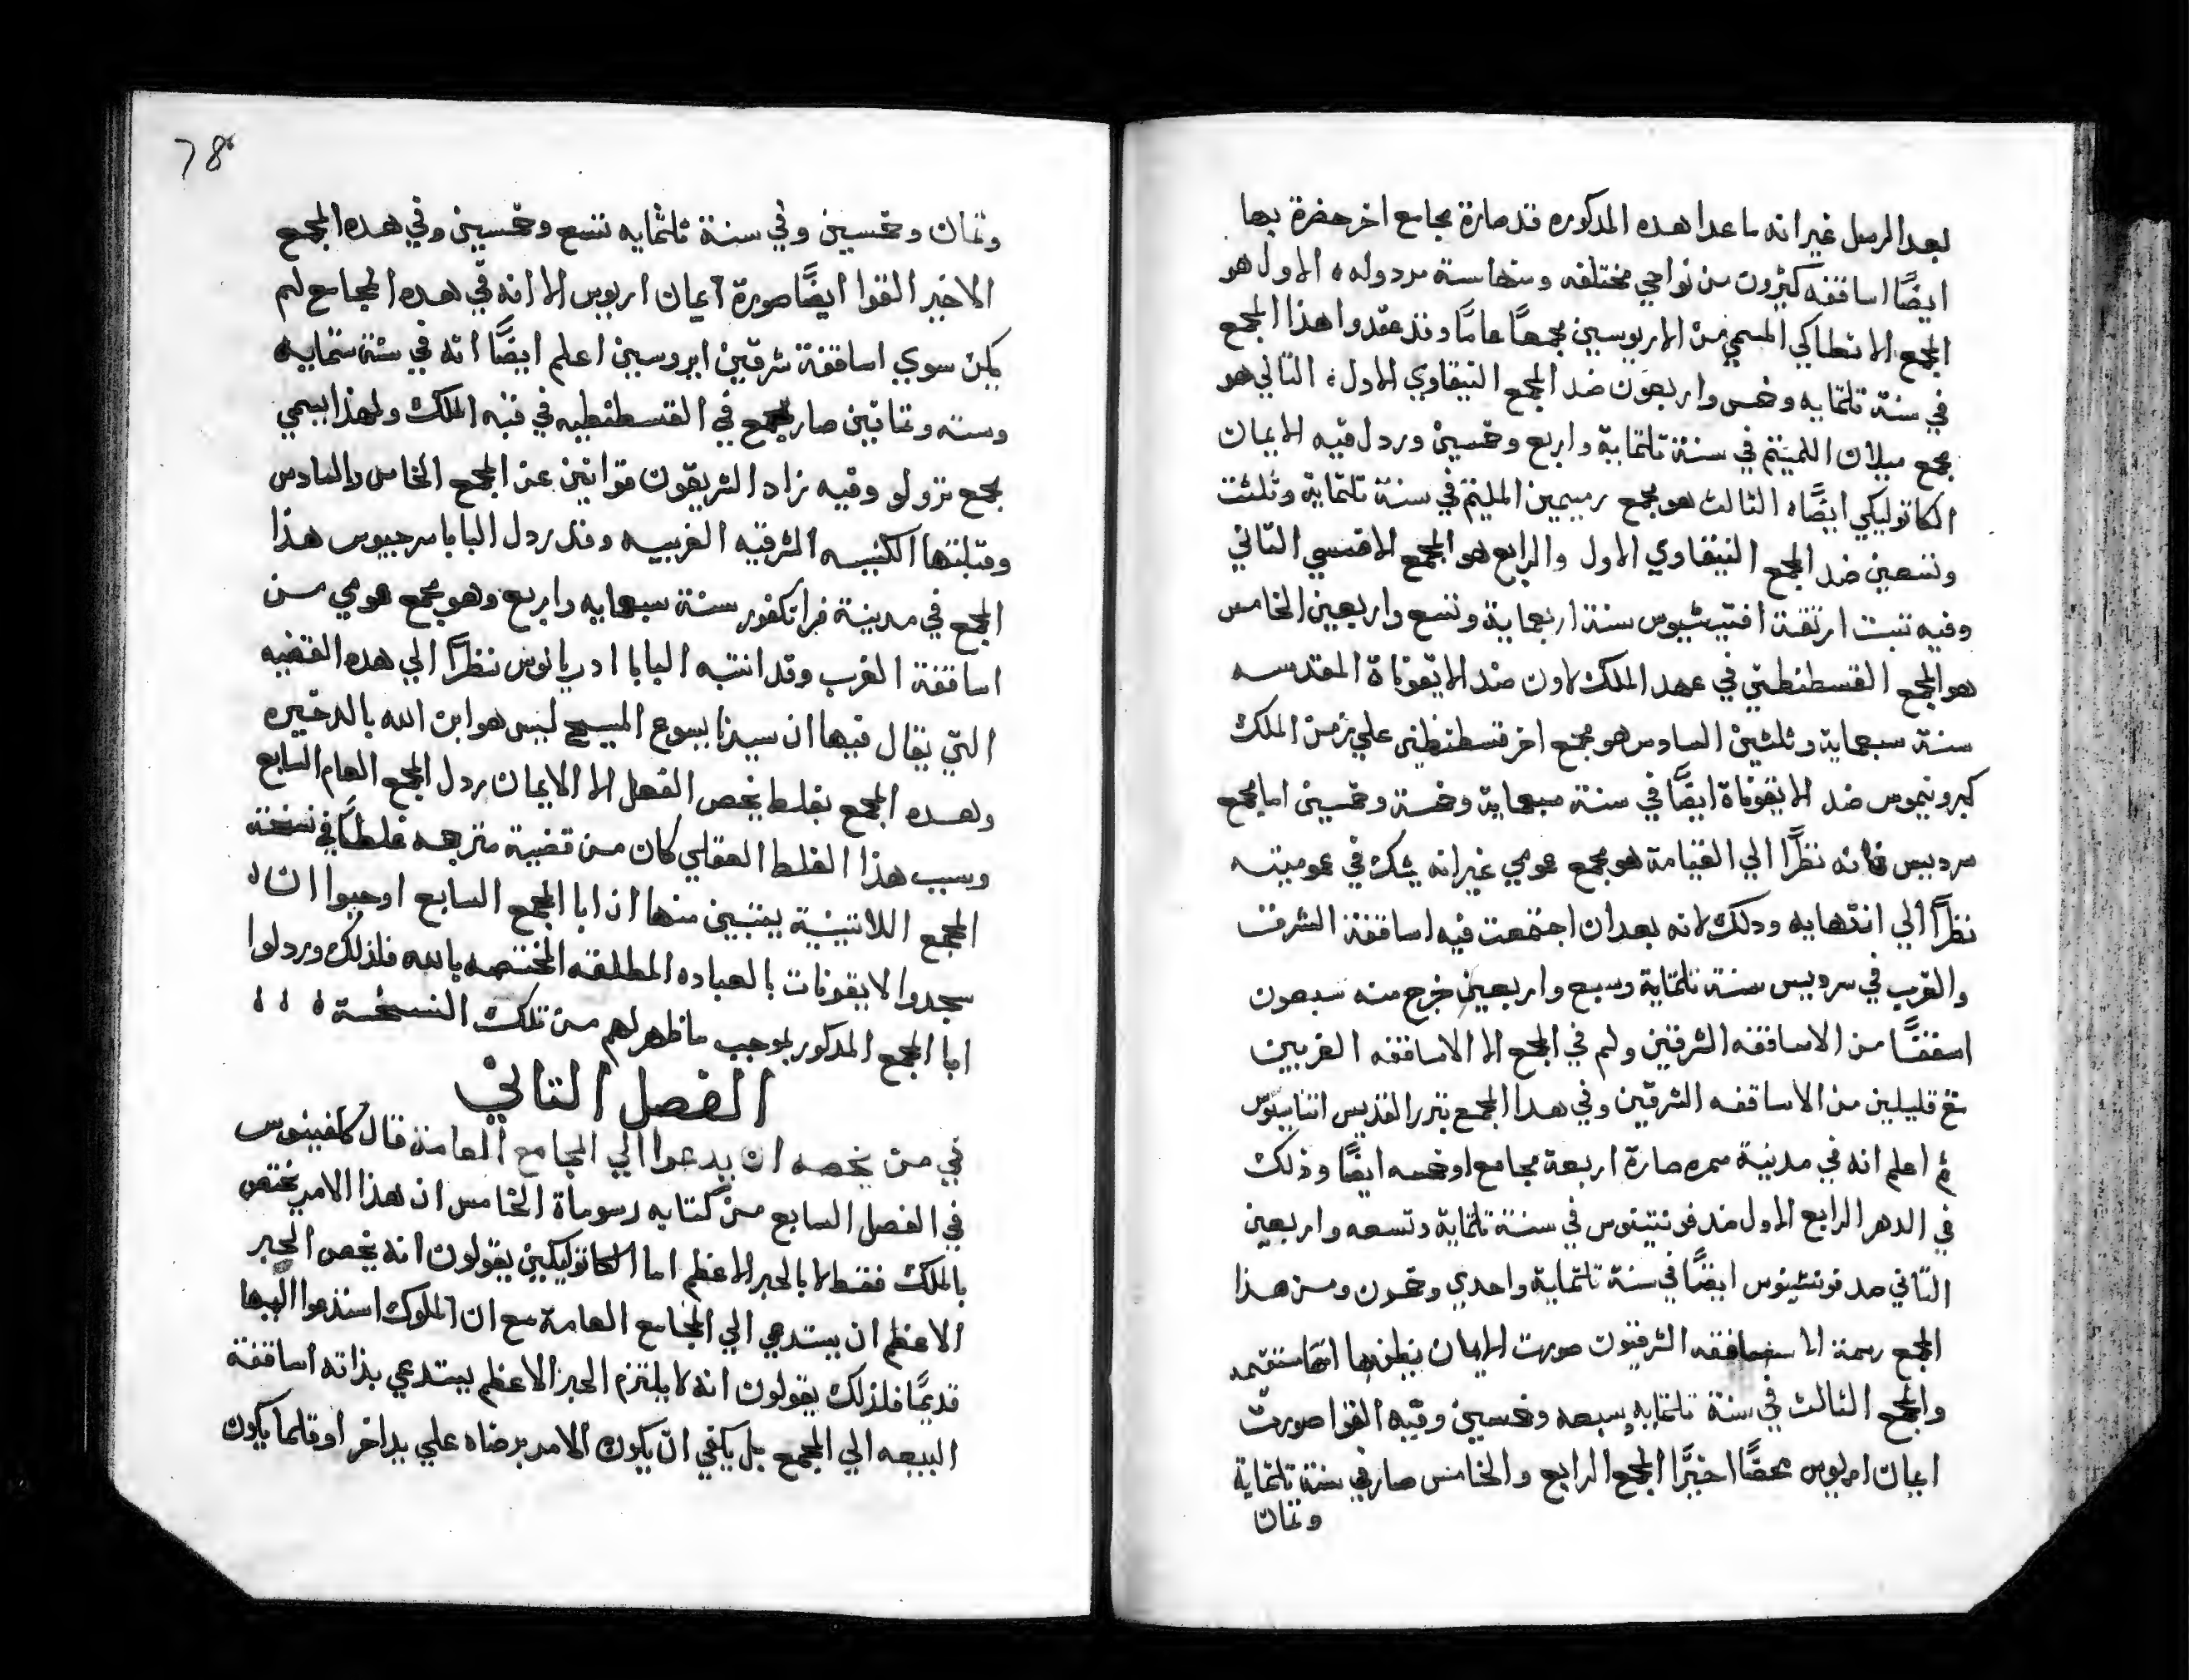 بعد الرسل غير انه ما عدا هده المدكوره قد صارة مجامع اخر حضرة بها
ايضًا اساقفه كثيرون من نواحي مختلفه ومنها ستة مردوله، الاول هو
المجمع الانطاكي المسمي من الاريوسيين مجمعًا عامًا وقد عقدوا هذا المجمع
في سنة تلتمايه وخمس واربعون ضد المجمع النيقاوي الاول، التاني هو
مجمع ميلان الملتيم في سنة تلتماية واربع وخمسين وردل فيه الايمان
الكاتوليكي ايضًا، الثالث هو مجمع رميميين الملتيم في سنة تلتماية وثلثت
وتسعين ضد المجمع النيقاوي الاول والرابع هو المجمع الافسسي التاني
وفيه تبت ارتقة افتيشيوس سنة اربعماية وتسع واربعين الخامس
هو المجمع القسطنطيني في عهد الملك لاون ضد الايقوناة المقدسه
سنة سبعماية وثلثين السادس هو مجمع اخر قسطنطيني علي زمن الملك
كبرونيموس ضد الايقوناة ايضًا في سنة سبعماية وخمسة وخمسين اما مجمع
سرديس فانه نظرًا الي القيامة هو مجمع عومي غير انه يشك في عوميته
نظرًا الي انتهايه ودلك لانه بعد ان اجتمعت فيه اساقفة الشرق
والغرب في سرديس سنة تلتماية وسبع واربعين خرج منه سبعون
اسقفًا من الاساقفه الشرقين ولم في المجمع الا الاساقفه الغربيين
مع قليلين من الاساقفه الشرقين وفي هدا المجمع تبرر القديس اتناسيوس
ثم اعلم انه في مدينة سمره صارة اربعة مجامع او خمسه ايضًا وذلك
في الدهر الرابع الاول ضد فونتينوس في سنة تلتماية وتسعه واربعين
التاني ضد فونتينوس ايضًا في سنة تلتماية واحدي وخمسون ومن هذا
المجمع رسمة الاساقفه الشرقيون صورت الايمان يظنوها انها مستقيمه
والمجمع الثالث في سنة تلتمايه وسبعه وخمسين وفيه القوا صورت
ايمان اريوس محضًا اخيرًا المجمع الرابع والخامس صار في سنة تلتماية
وتمان
78
وتمان وخمسين وفي سنة ثلثمايه تسع وخمسين وفي هده المجمع
الاخير القوا ايضًا صورة ايمان اريوس الا انه في هده المجامع لم
يكن سوي اساقفة شرقين اريوسيين اعلم ايضًا انه في سنة ستمايه
وسته وتمانين صار مجمع في القسطنطيه في قبه الملك ولهذا يسمي
مجمع ترولو وفيه زاد الشريقون قوانين عن المجمع الخامس والسادس
وقبلتها الكنيسه الشرقيه الغربيه وقد ردل البابا سرجيوس هذا
المجمع في مدينة فرانكفور سنة سبعمايه واربع وهو مجمع عومي من
اساقفة الغرب وقد انتبه البابا ادريانوس نظرًا الي هده القضيه
التي يقال فيها ان سيدنا يسوع المسيح ليس هو ابن الله بالدخيره
وهده المجمع بغلط يخص الفعل الا الايمان ردل المجمع العام السابع
وسبب هذا الغلط العقلي كان من قضية مترجمه غلطًا في نسخة
المجمع اللاتينية يبتبين منها ان ابا المجمع السابع اوجبوا ان،
سجدوا الايقونات بالعباده المطلقه المختصه بالله فلذلك وردلوا
ابا المجمع المدكور بموجب ما ظهر لهم من تلك النسخة، ، ،
الفصل التاني
في من يخصه ان يدعوا الي المجامع العامة قال كلفينوس
في الفصل السابع من كتابه رسوماة الخامس ان هذا الامر يختص
بالملك فقط لا بالحبر الاعظم اما الكاتوليكين يقولون انه يخص الحبر
الاعظم ان يستدعي الي المجامع العامة مع ان الملوك استدعوا اليها
قديمًا فلذلك يقولون انه لا يلتزم الحبر الاعظم يستدعي بذاته اساقفة
البيعه الي المجمع بل يكفي ان يكون الامر برضاه علي يد اخر او قلما يكون